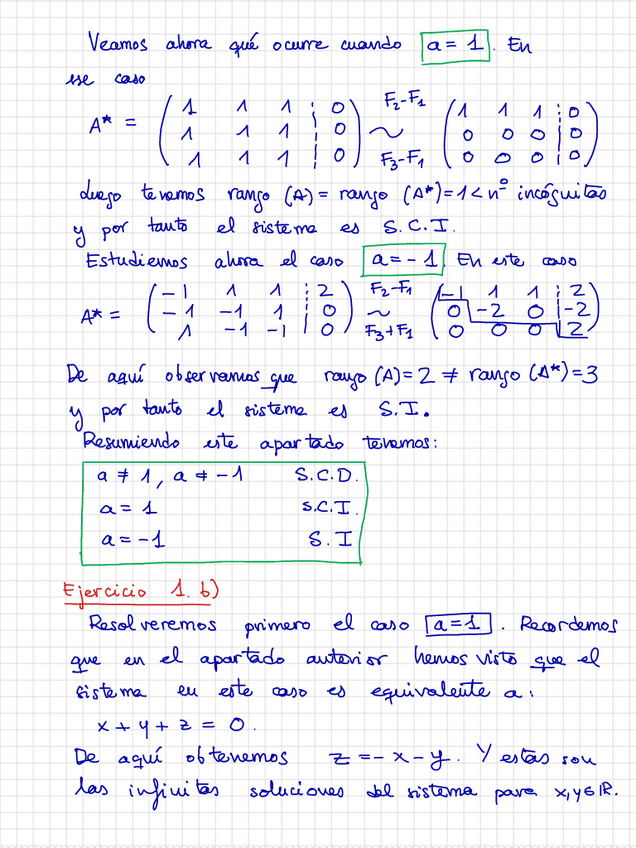 Veamos ahora qué ocurre cuando a = 1. En
ese caso
A* = ( 1 1 1 | 0 ; 1 1 1 | 0 ; 1 1 1 | 0 ) F2-F1 ~ F3-F1 ( 1 1 1 | 0 ; 0 0 0 | 0 ; 0 0 0 | 0 )
Luego tenemos rango (A) = rango (A*) = 1 < nº incógnitas
y por tanto el sistema es S.C.I.
Estudiemos ahora el caso a = -1. En este caso
A* = ( -1 1 1 | 2 ; -1 -1 1 | 0 ; 1 -1 -1 | 0 ) F2-F1 ~ F3+F1 ( -1 1 1 | 2 ; 0 -2 0 | -2 ; 0 0 0 | 2 )
De aquí observamos que rango (A) = 2 ≠ rango (A*) = 3
y por tanto el sistema es S.I.
Resumiendo este apartado tenemos:
a ≠ 1, a ≠ -1 S.C.D.
a = 1 S.C.I.
a = -1 S.I
Ejercicio 1. b)
Resolveremos primero el caso a=1. Recordemos
que en el apartado anterior hemos visto que el
sistema en este caso es equivalente a:
x + y + z = 0.
De aquí obtenemos z = -x - y. Y estas son
las infinitas soluciones del sistema para x,y∈ℝ.